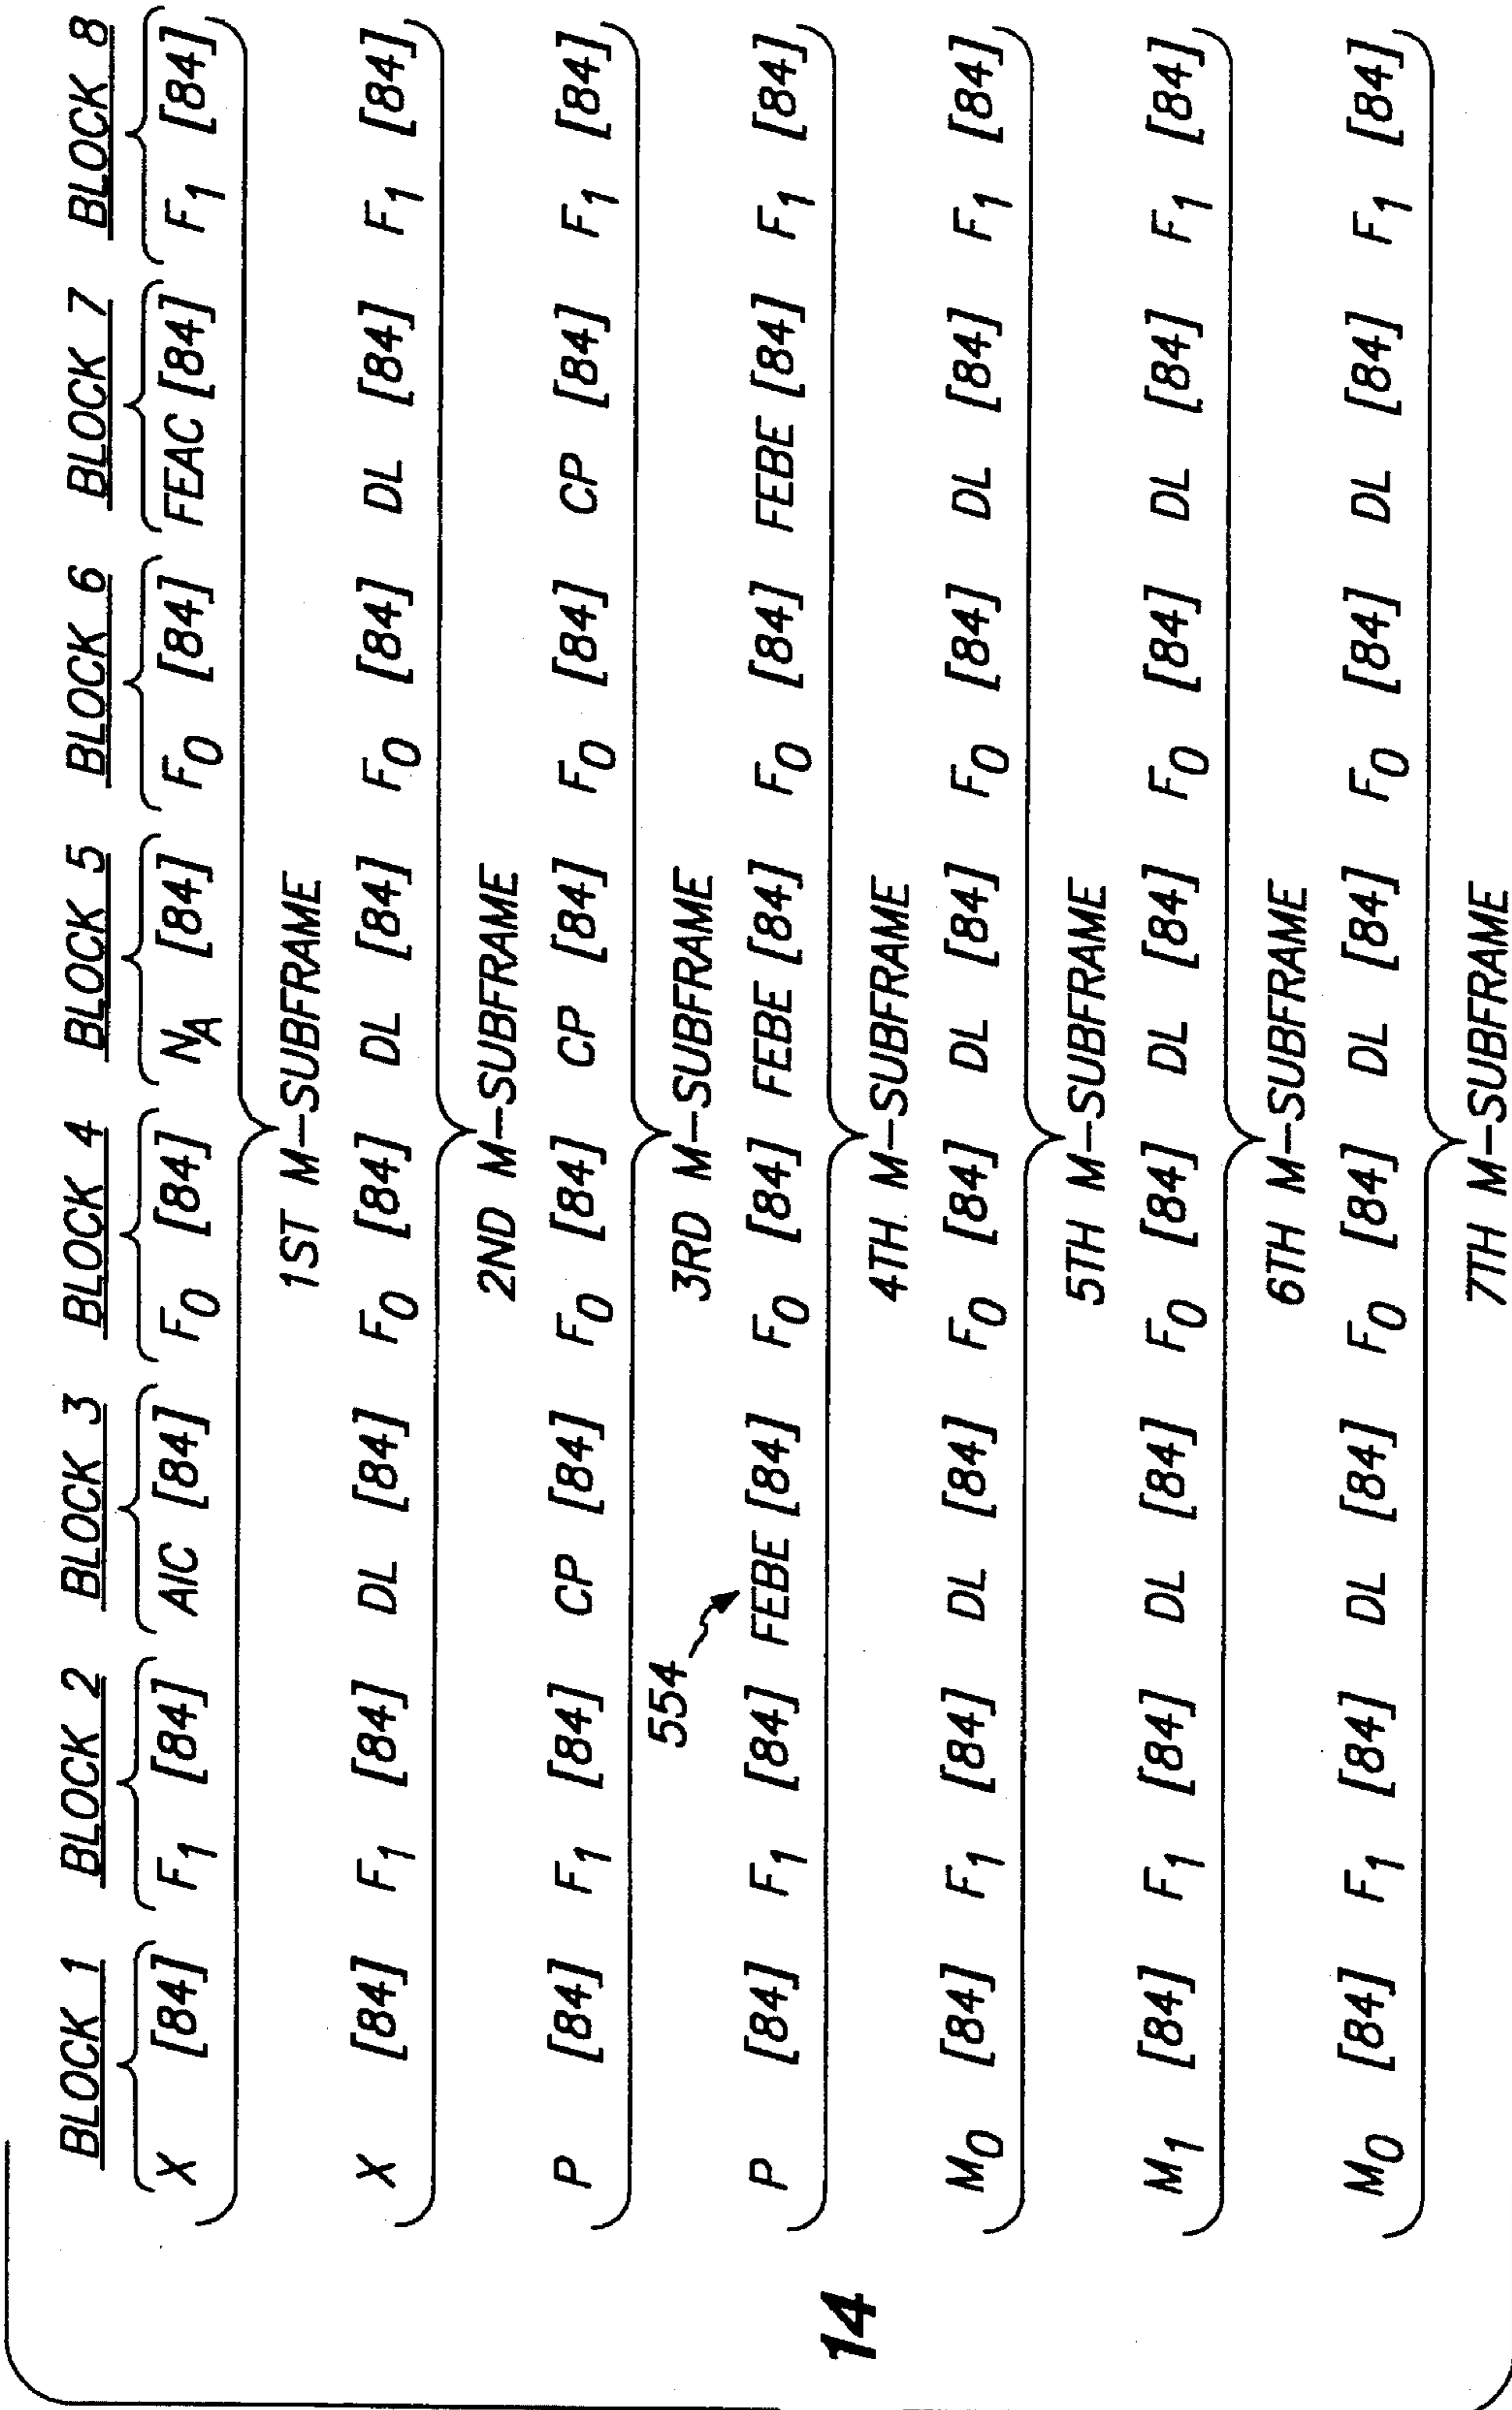 BLOCK 1 BLOCK 2 BLOCK 3 BLOCK 4 BLOCK 5 BLOCK 6 BLOCK 7 BLOCK 8
X [84] F1 [84] AIC [84] F0 [84] NA [84] F0 [84] FEAC [84] F1 [84]
1ST M-SUBFRAME
X [84] F1 [84] DL [84] F0 [84] DL [84] F0 [84] DL [84] F1 [84]
2ND M-SUBFRAME
P [84] F1 [84] CP [84] F0 [84] CP [84] F0 [84] CP [84] F1 [84]
3RD M-SUBFRAME
554
P [84] F1 [84] FEBE [84] F0 [84] FEBE [84] F0 [84] FEBE [84] F1 [84]
4TH. M-SUBFRAME
M0 [84] F1 [84] DL [84] F0 [84] DL [84] F0 [84] DL [84] F1 [84]
5TH M-SUBFRAME
M1 [84] F1 [84] DL [84] F0 [84] DL [84] F0 [84] DL [84] F1 [84]
6TH M-SUBFRAME
M0 [84] F1 [84] DL [84] F0 [84] DL [84] F0 [84] DL [84] F1 [84]
7TH M-SUBFRAME
14